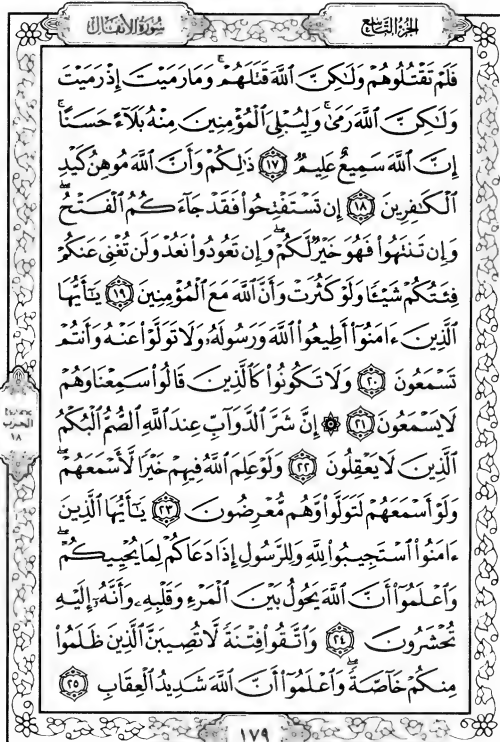 سُورَةُ الأَنفَالِ
الجُزْءُ التَّاسِعُ
فَلَمْ تَقْتُلُوهُمْ وَلَٰكِنَّ ٱللَّهَ قَتَلَهُمْ ۚ وَمَا رَمَيْتَ إِذْ رَمَيْتَ
وَلَٰكِنَّ ٱللَّهَ رَمَىٰ ۚ وَلِيُبْلِىَ ٱلْمُؤْمِنِينَ مِنْهُ بَلَآءً حَسَنًا ۚ
إِنَّ ٱللَّهَ سَمِيعٌ عَلِيمٌ ١٧ ذَٰلِكُمْ وَأَنَّ ٱللَّهَ مُوهِنُ كَيْدِ
ٱلْكَٰفِرِينَ ١٨ إِن تَسْتَفْتِحُوا۟ فَقَدْ جَآءَكُمُ ٱلْفَتْحُ ۖ
وَإِن تَنتَهُوا۟ فَهُوَ خَيْرٌ لَّكُمْ ۖ وَإِن تَعُودُوا۟ نَعُدْ وَلَن تُغْنِىَ عَنكُمْ
فِئَتُكُمْ شَيْـًٔا وَلَوْ كَثُرَتْ وَأَنَّ ٱللَّهَ مَعَ ٱلْمُؤْمِنِينَ ١٩ يَٰٓأَيُّهَا
ٱلَّذِينَ ءَامَنُوٓا۟ أَطِيعُوا۟ ٱللَّهَ وَرَسُولَهُۥ وَلَا تَوَلَّوْا۟ عَنْهُ وَأَنتُمْ
تَسْمَعُونَ ٢٠ وَلَا تَكُونُوا۟ كَٱلَّذِينَ قَالُوا۟ سَمِعْنَا وَهُمْ
لَا يَسْمَعُونَ ٢١ ۞ إِنَّ شَرَّ ٱلدَّوَآبِّ عِندَ ٱللَّهِ ٱلصُّمُّ ٱلْبُكْمُ
ٱلَّذِينَ لَا يَعْقِلُونَ ٢٢ وَلَوْ عَلِمَ ٱللَّهُ فِيهِمْ خَيْرًا لَّأَسْمَعَهُمْ ۖ
وَلَوْ أَسْمَعَهُمْ لَتَوَلَّوا۟ وَّهُم مُّعْرِضُونَ ٢٣ يَٰٓأَيُّهَا ٱلَّذِينَ
ءَامَنُوا۟ ٱسْتَجِيبُوا۟ لِلَّهِ وَلِلرَّسُولِ إِذَا دَعَاكُمْ لِمَا يُحْيِيكُمْ ۖ
وَٱعْلَمُوٓا۟ أَنَّ ٱللَّهَ يَحُولُ بَيْنَ ٱلْمَرْءِ وَقَلْبِهِۦ وَأَنَّهُۥٓ إِلَيْهِ
تُحْشَرُونَ ٢٤ وَٱتَّقُوا۟ فِتْنَةً لَّا تُصِيبَنَّ ٱلَّذِينَ ظَلَمُوا۟
مِنكُمْ خَآصَّةً ۖ وَٱعْلَمُوٓا۟ أَنَّ ٱللَّهَ شَدِيدُ ٱلْعِقَابِ ٢٥
الحزب
١٨
١٧٩